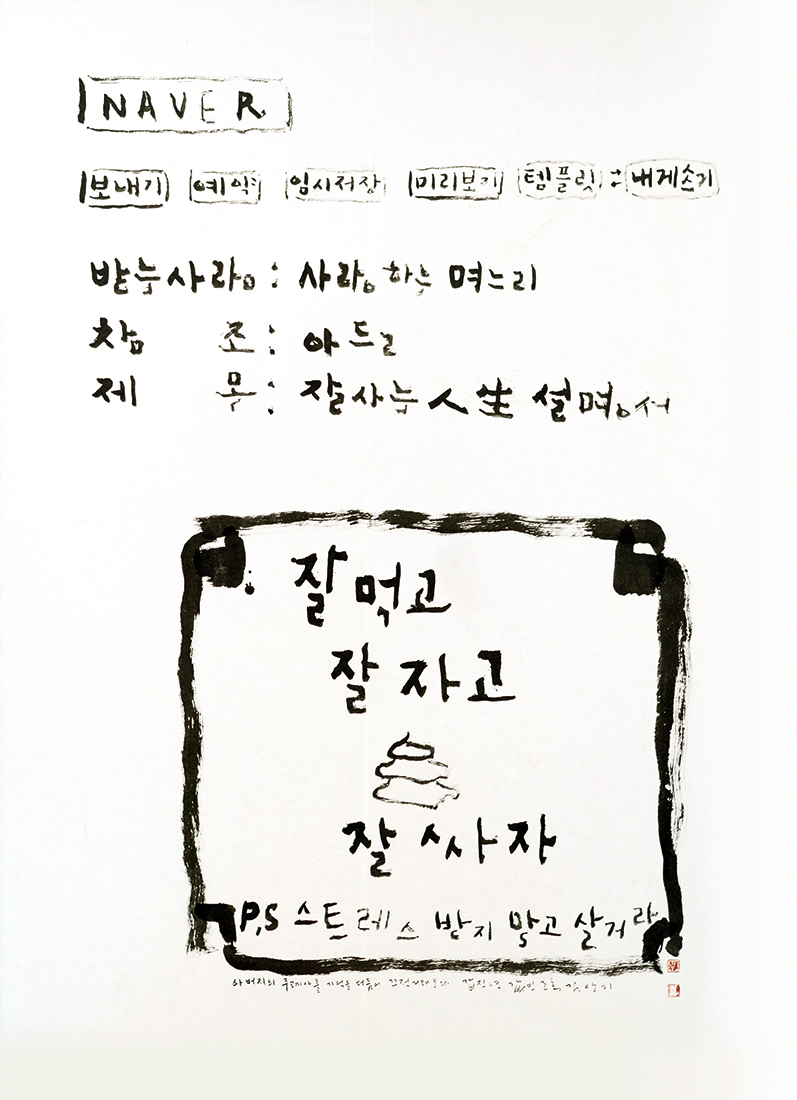 NAVER
보내기 예약 임시저장 미리보기 템플릿 : 내게쓰기
받는사람 : 사랑하는 며느리
참 조 : 아들
제 목 : 잘사는 人生 설명서
잘먹고
잘자고
잘싸자
P,S 스트레스 받지 말고 살거라
아버지의